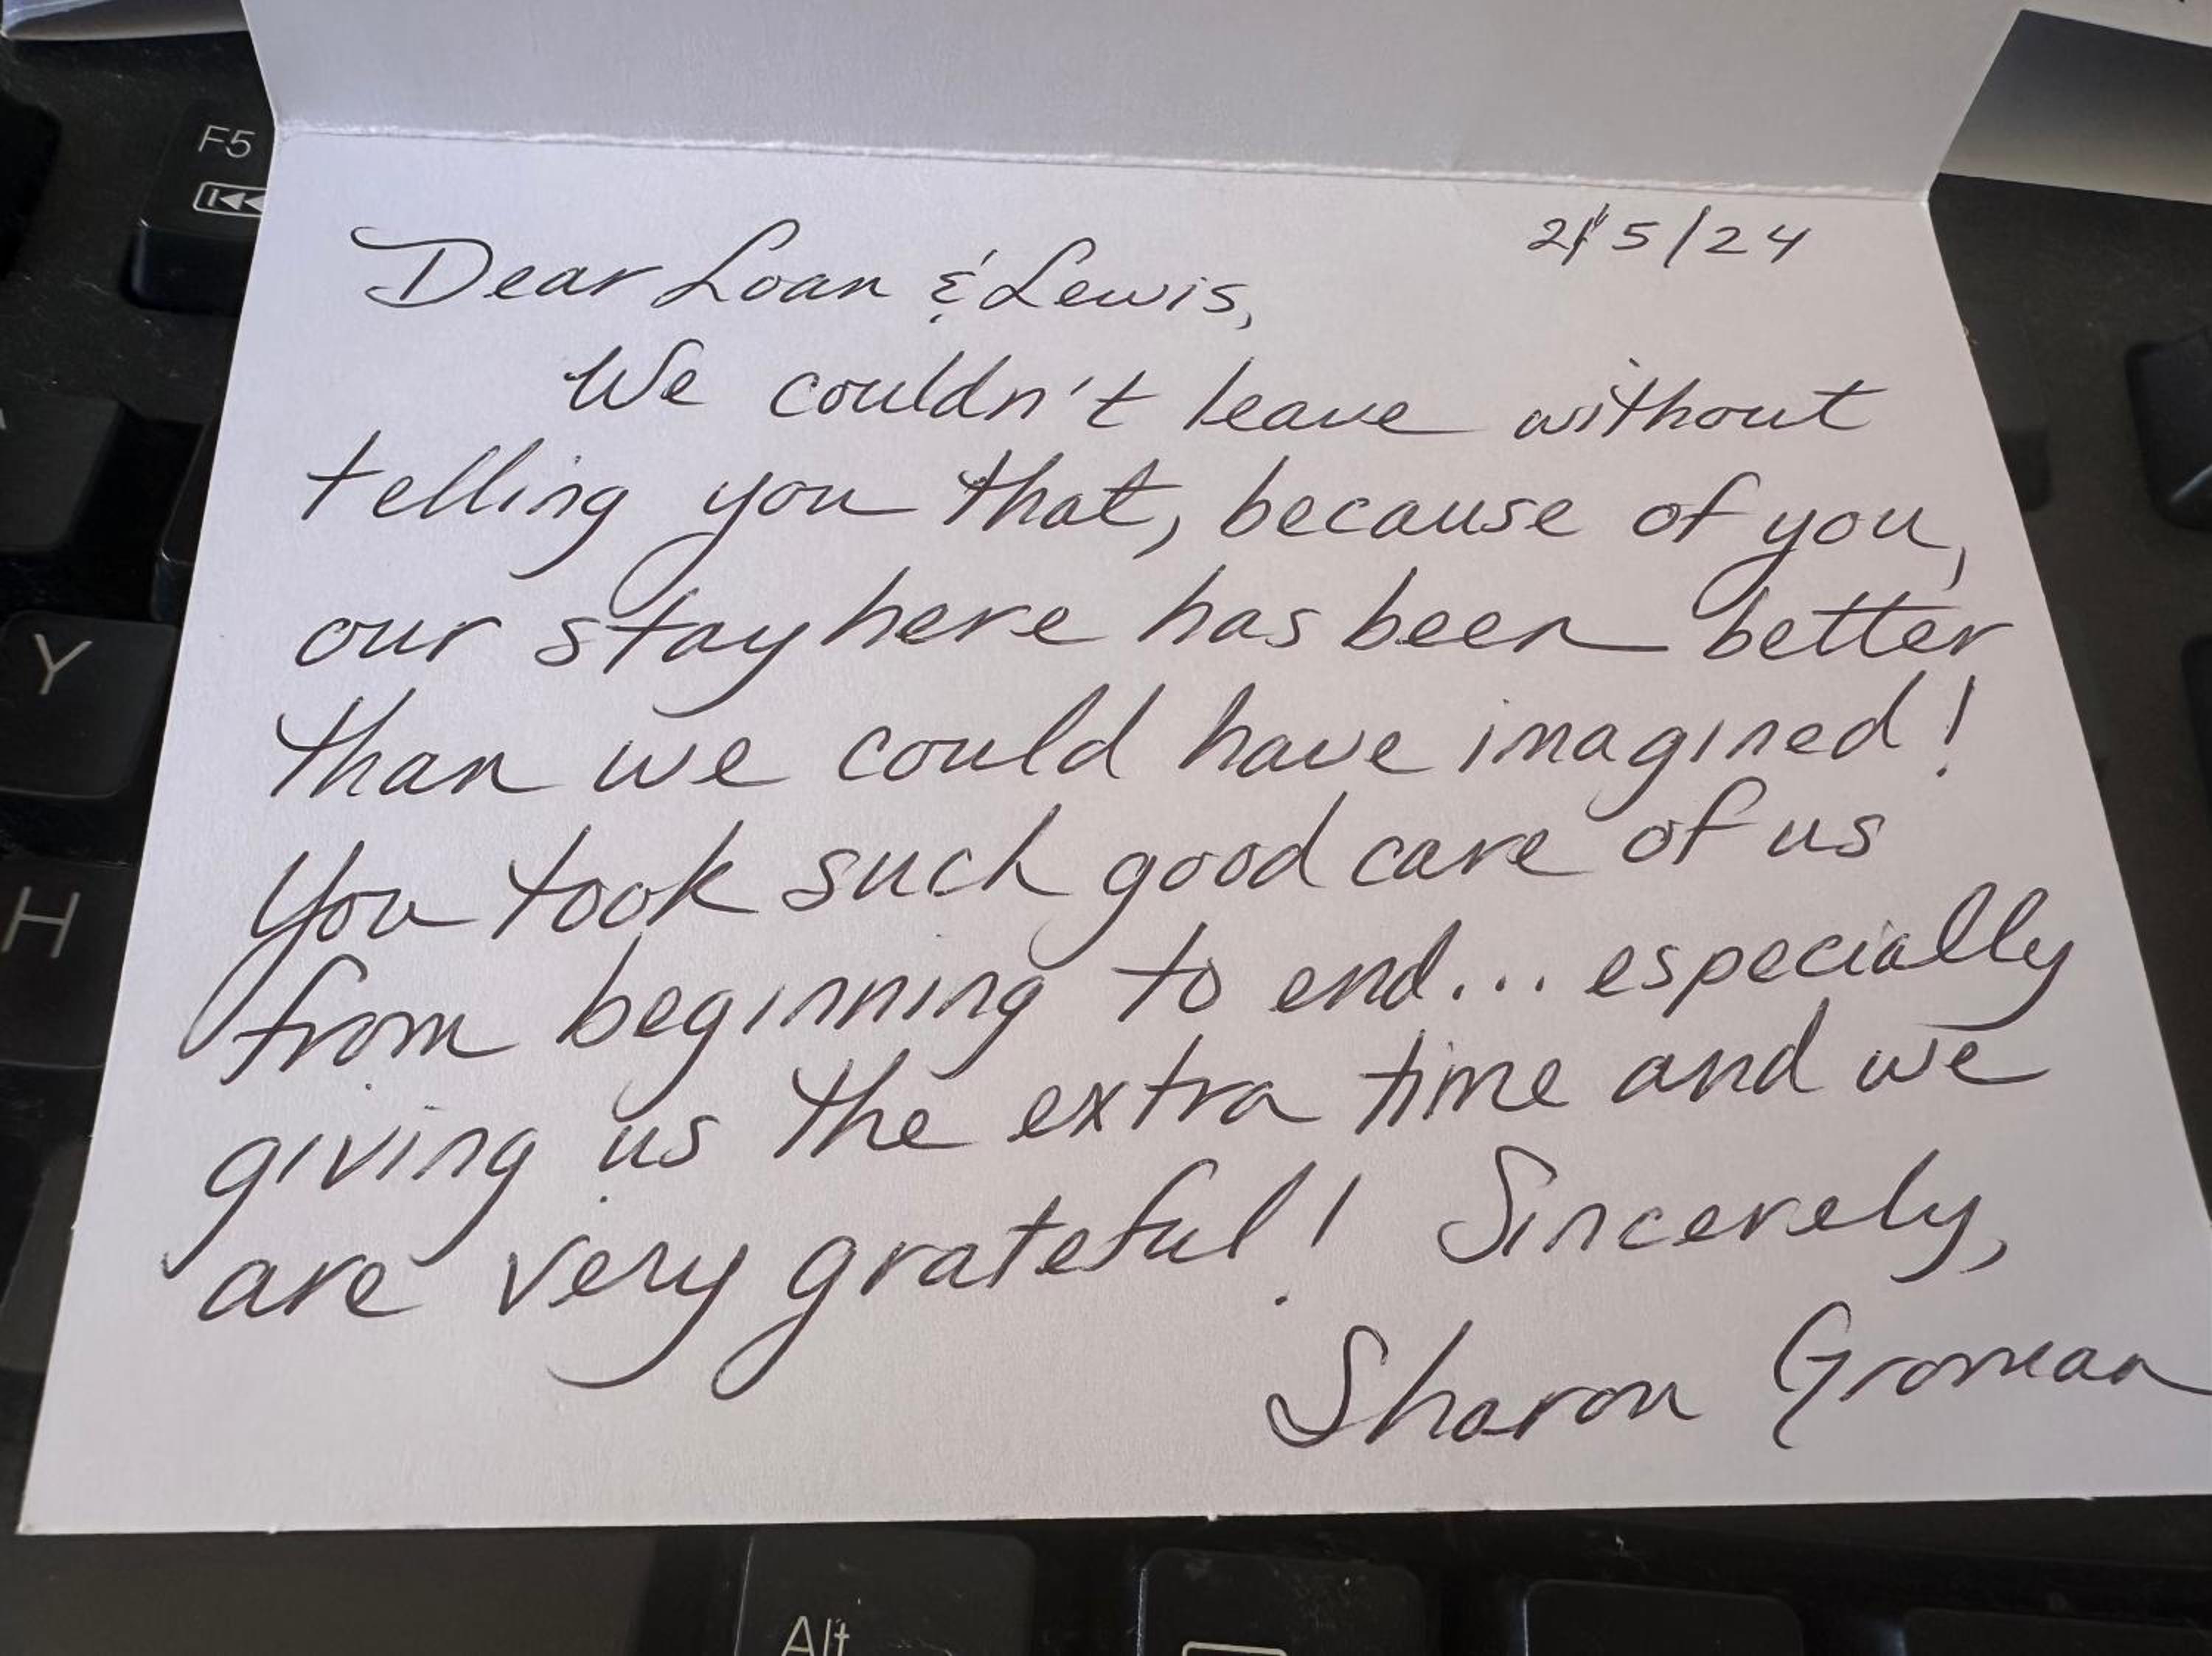 F5
2/5/24
Dear Loan & Lewis,
We couldn't leave without
telling you that, because of you,
our stay here has been better
than we could have imagined!
You took such good care of us
from beginning to end... especially
giving us the extra time and we
are very grateful! Sincerely,
Sharon Groman
Y
H
Alt